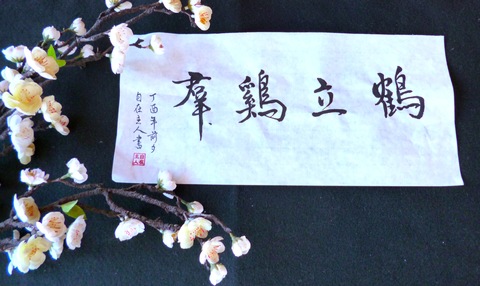 鶴立鷄羣
丁酉年前夕
自在主人書